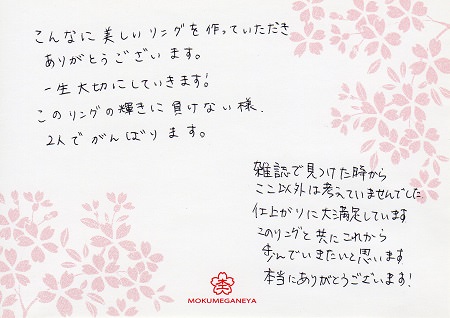 こんなに美しいリングを作っていただき
ありがとうございます。
一生大切にしていきます!
このリングの輝きに負けない様、
2人でがんばります。
雑誌で見つけた時から
ここ以外は考えていませんでした
仕上がりに大満足しています
このリングと共にこれから
歩んでいきたいと思います
本当にありがとうございます!
MOKUMEGANEYA